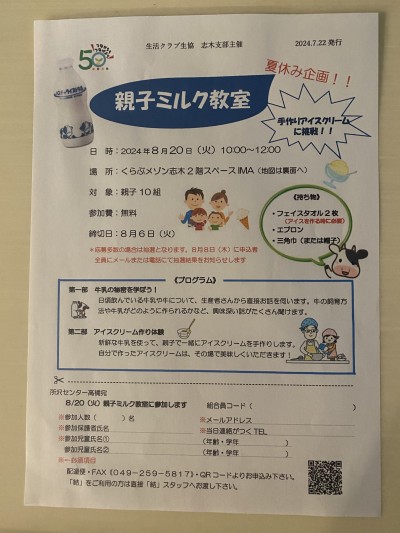 生活クラブ生協 志木支部主催
2024.7.22 発行
50
夏休み企画！！
親子ミルク教室
手作りアイスクリーム
に挑戦！！
日 時：2024年8月20日（火）10:00～12:00
場 所：くらぶメゾン志木2階スペースIMA（地図は裏面へ）
対 象：親子10組
参加費：無料
締切日：8月6日（火）
＊応募多数の場合は抽選となります。8月8日（木）に申込者
全員にメールまたは電話にて抽選結果をお知らせします
《持ち物》
・フェイスタオル2枚
（アイスを作る時に必要）
・エプロン
・三角巾（または帽子）
《プログラム》
第一部 牛乳の秘密を学ぼう！
日頃飲んでいる牛乳や牛について、生産者さんから直接お話を伺います。牛の飼育方
法や牛乳がどのように作られるかなど、興味深い話がたくさん聞けます。
第二部 アイスクリーム作り体験
新鮮な牛乳を使って、親子で一緒にアイスクリームを手作りします。
自分で作ったアイスクリームは、その場で美味しくいただきます！
所沢センター高橋宛
8/20（火）親子ミルク教室に参加します 組合員コード（ ）
※参加人数（ ）名 ※メールアドレス
※参加保護者氏名 ※当日連絡がつくTEL
※参加児童氏名① （年齢・学年 ）
参加児童氏名② （年齢・学年 ）
※＝必須項目
配達便・FAX《049-259-5817》・QRコードよりお申込み下さい。
「結」をご利用の方は直接「結」スタッフへお渡し下さい。